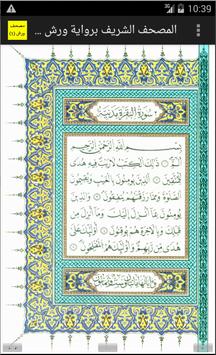 10:39
المصحف الشريف برواية ورش ...
مصحف
ورش (1)
سورة البقرة مدنية
بسم الله الرحمن الرحيم
ألم ذلك الكتب لا ريب فيه
هدى للمتقين الذين يومنون بالغيب ويقيمون
الصلوة ومما رزقنهم ينفقون والذين
يومنون بما أنزل إليك وما أنزل من
قبلك وبالأخرة هم يوقنون أولئك على
هدى من ربهم وأولئك هم المفلحون